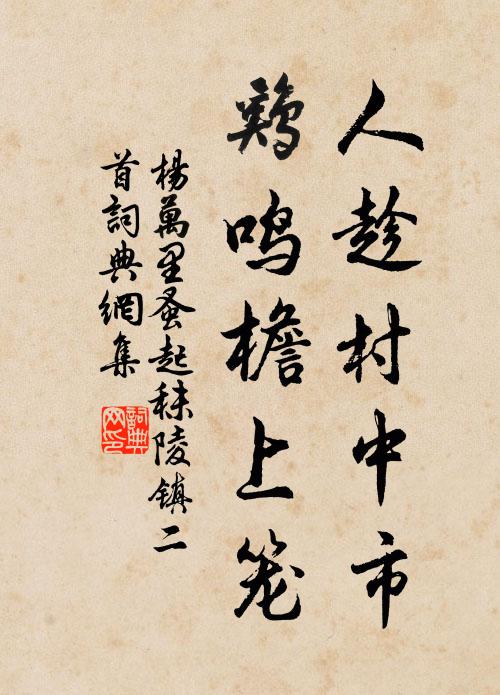 人趁村中市
鷄鸣檐上笼
楊萬里蚤起秣陵鎮二
首詞典網集
詞典
网印